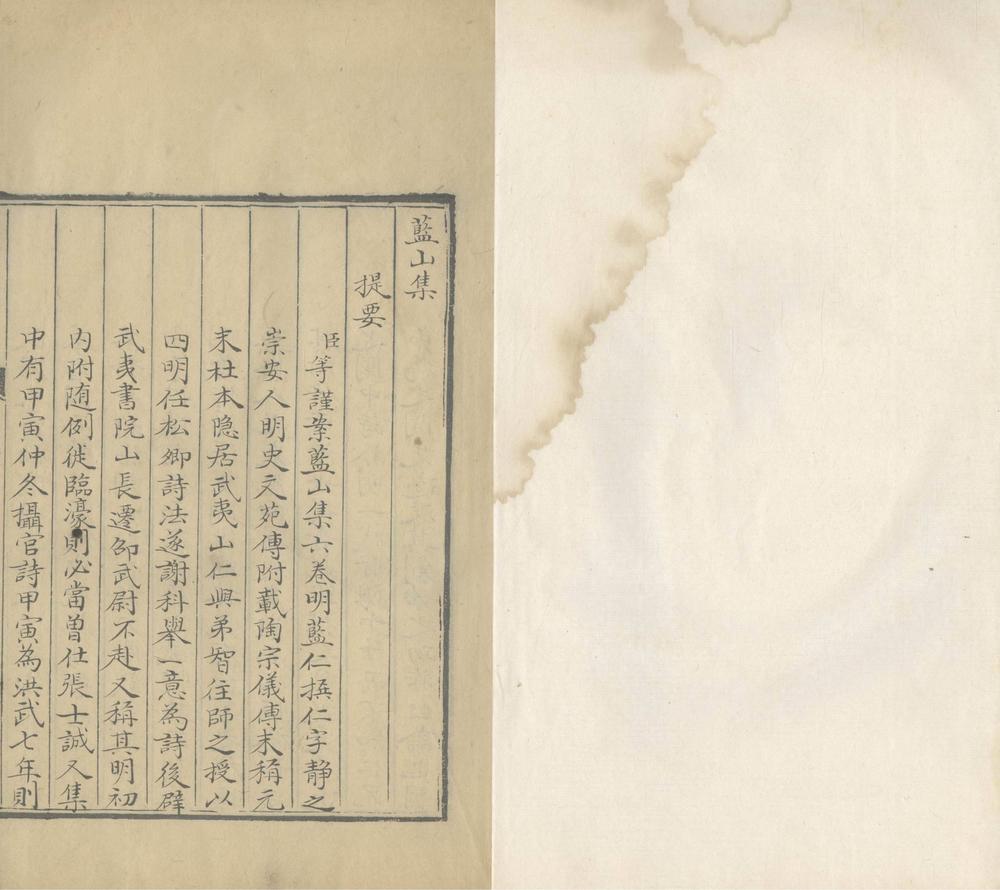 藍山集
提要
臣等謹案藍山集六卷明藍仁撰仁字靜之
崇安人明史文苑傳附載陶宗儀傳末稱元
末杜本隐居武夷山仁與弟智往師之授以
四明任松卿詩法遂謝科舉一意為詩後辟
武夷書院山長遷邵武尉不赴又稱其明初
内附随例徙臨濠則必當曽仕張士誠又集
中有甲寅仲冬攝官詩甲寅為洪武七年則